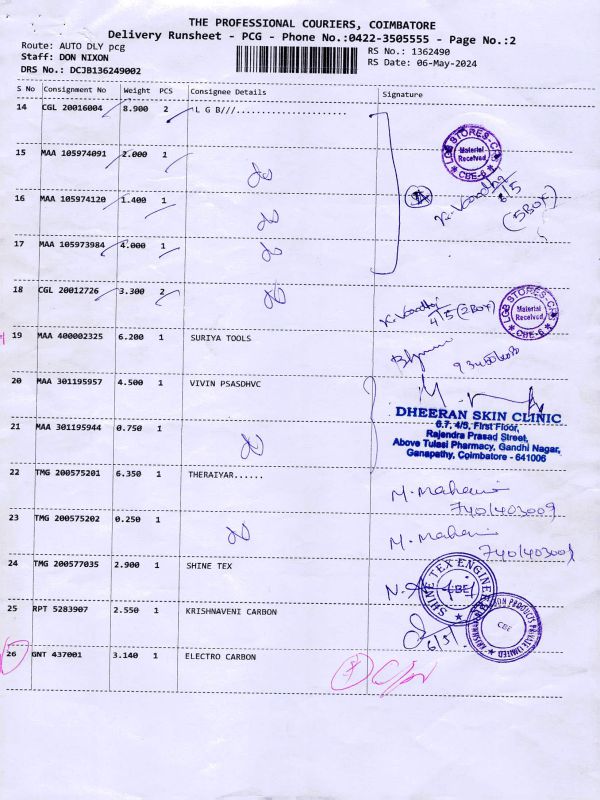 THE PROFESSIONAL COURIERS, COIMBATORE
Delivery Runsheet - PCG - Phone No.:0422-3505555 - Page No.:2
Route: AUTO DLY pcg
Staff: DON NIXON
DRS No.: DCJB136249002
RS No.: 1362490
RS Date: 06-May-2024
S No Consignment No Weight PCS Consignee Details Signature
14 CGL 20016004 8.900 2 L G B///.....................
LGB STORES-CBE
Material Received
CBE-6
15 MAA 105974091 2.000 1
16 MAA 105974120 1.400 1
(5 Box)
17 MAA 105973984 4.000 1
18 CGL 20012726 3.300 2
(2 Box)
LGB STORES-CBE
Material Received
CBE-6
19 MAA 400002325 6.200 1 SURIYA TOOLS
20 MAA 301195957 4.500 1 VIVIN PSASDHVC
DHEERAN SKIN CLINIC
6.7, 4/5, First Floor,
Rajendra Prasad Street,
Above Tulasi Pharmacy, Gandhi Nagar,
Ganapathy, Coimbatore - 641006
21 MAA 301195944 0.750 1
22 TMG 200575201 6.350 1 THERAIYAR......
7401403009
23 TMG 200575202 0.250 1
7401403009
24 TMG 200577035 2.900 1 SHINE TEX
SHINE TEX ENGINEERS
CBE
25 RPT 5283907 2.550 1 KRISHNAVENI CARBON
6/5/
CBE
26 GNT 437001 3.140 1 ELECTRO CARBON